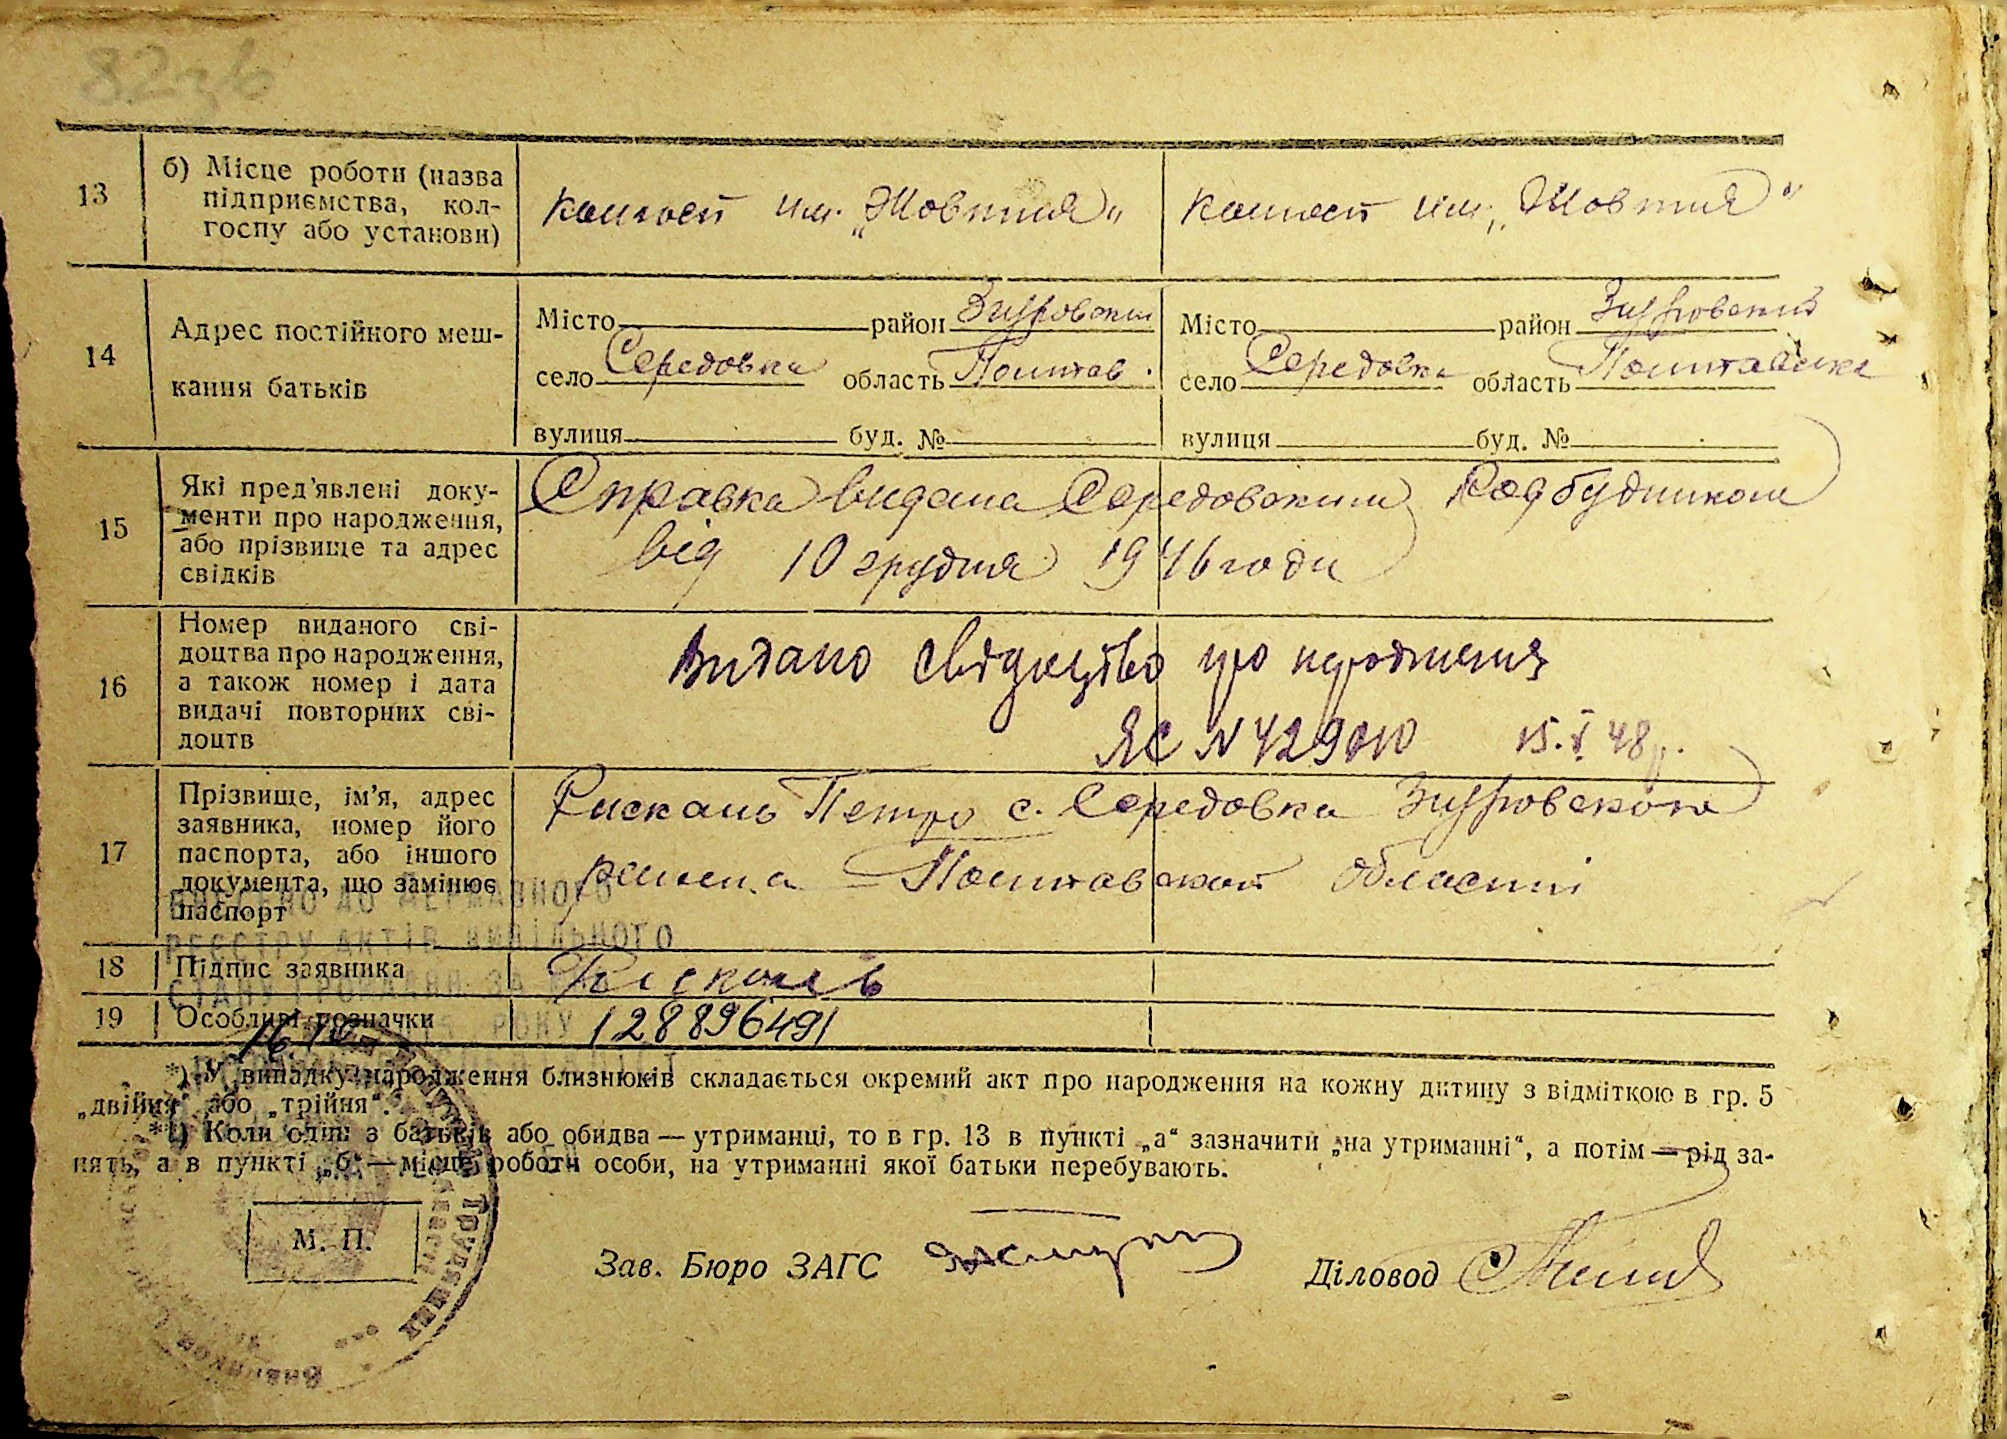 82зв
13 б) Місце роботи (назва
підприємства, кол-
госпу або установи)
колгосп им. „Жовтня“ колгосп им. „Жовтня“
14 Адрес постійного меш-
кання батьків
Місто район Згуровский Місто район Згуровский
село Середовка область Полтав. село Середовка область Полтавска
вулиця буд. № вулиця буд. №
15 Які пред’явлені доку-
менти про народження,
або прізвище та адрес
свідків
Справка видана Середовским
від 10 грудня 1946 годи
16 Номер виданого сві-
доцтва про народження,
а також номер і дата
видачі повторних сві-
доцтв
Видано свідоцтво про народження
ЯС N 429010 15.I 48р.
17 Прізвище, ім’я, адрес
заявника, номер його
паспорта, або іншого
документа, що замінює
паспорт
Рискаль Петро с. Середовка Згуровского
района Полтавской области
ВНЕСЕНО ДО ДЕРЖАВНОГО
РЕЄСТРУ АКТІВ ЦИВІЛЬНОГО
СТАНУ ГРОМАДЯН ЗА
РОКУ
18 Підпис заявника Рискаль
19 Особливі позначки 128896491
*) У випадку народження близнюків складається окремий акт про народження на кожну дитину з відміткою в гр. 5
„двійня“ або „трійня“.
**) Коли один з батьків або обидва — утриманці, то в гр. 13 в пункті „а“ зазначити „на утриманні“, а потім — рід за-
нять, а в пункті „б“ — місце роботи особи, на утриманні якої батьки перебувають.
М. П.
Зав. Бюро ЗАГС
Діловод